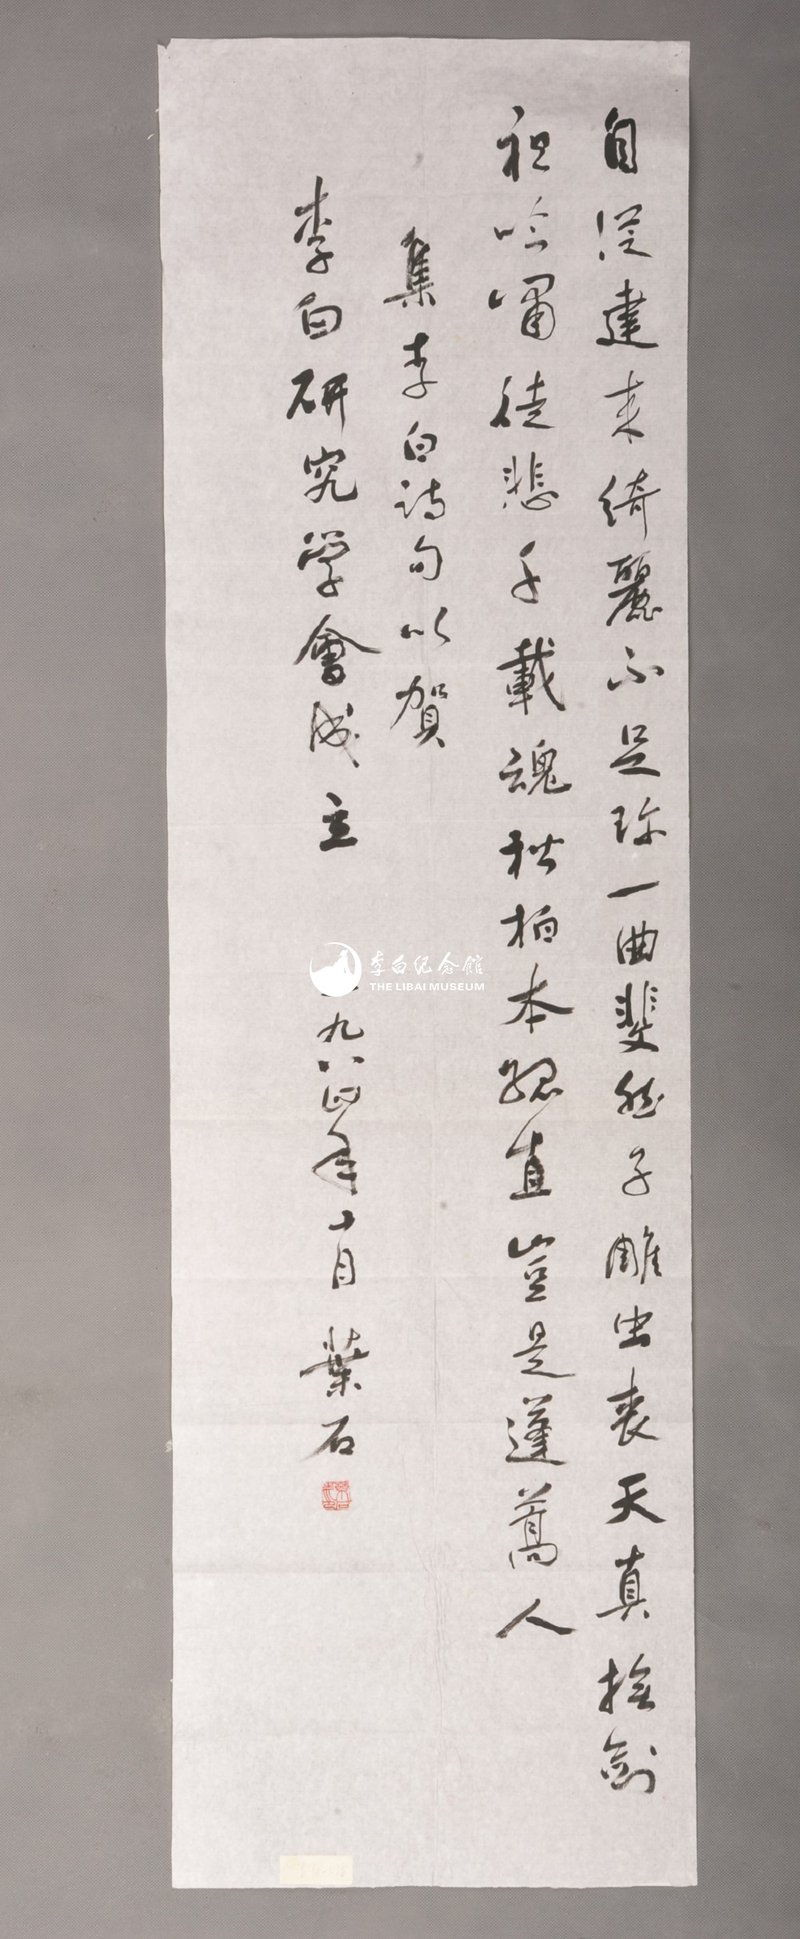 自從建来綺麗不足珍一曲斐然子雕虫喪天真劍
吟嘯徒悲千載魂松柏本孤直豈是蓬蒿人
集李白詩句以賀
李白研究学會成立
一九八四年十月 葉石
李白纪念館
THE LIBAI MUSEUM